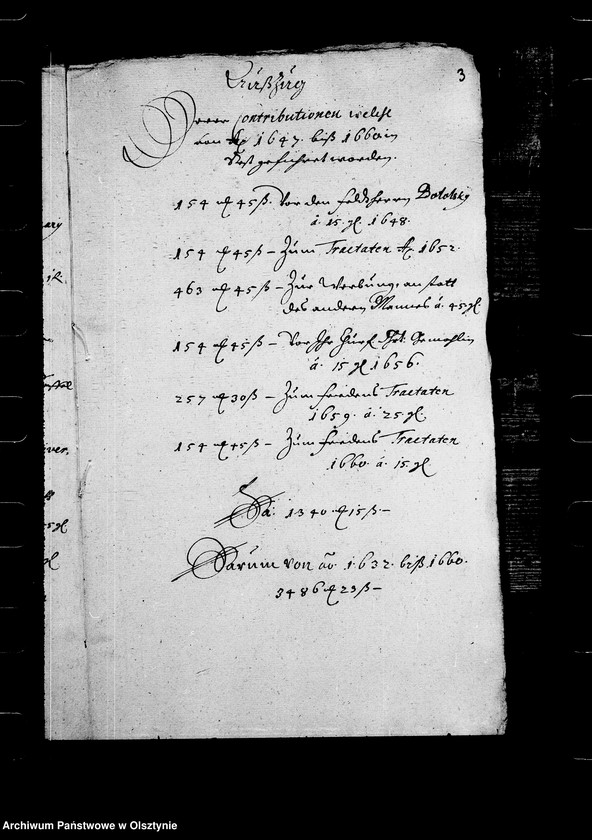 3
Derer Contributionen welche
von Ao 1647. biß 1660 in
Rest geführet worden.
154 ₰ 45 ß. Vor den Feldtherrn
á. 15. gl. 1648.
154 ₰ 45 ß – Zum Tractaten Ao 1652.
463 ₰ 45 ß – Zur Werbung, anstatt
des andern Mannes á. 45 gl
154 ₰ 45 ß – Vor Ihr Churf. Gemahlin
á. 15 gl 1656.
257 ₰ 30 ß – Zum friedens Tractaten
1659. á. 25 gl.
154 ₰ 45 ß – Zum friedens Tractaten
1660. á. 15. gl
Sa. 1340 ₰ 15 ß –
von ão. 1632. biß 1660.
3486 ₰ 23 ß –
Archiwum Państwowe w Olsztynie